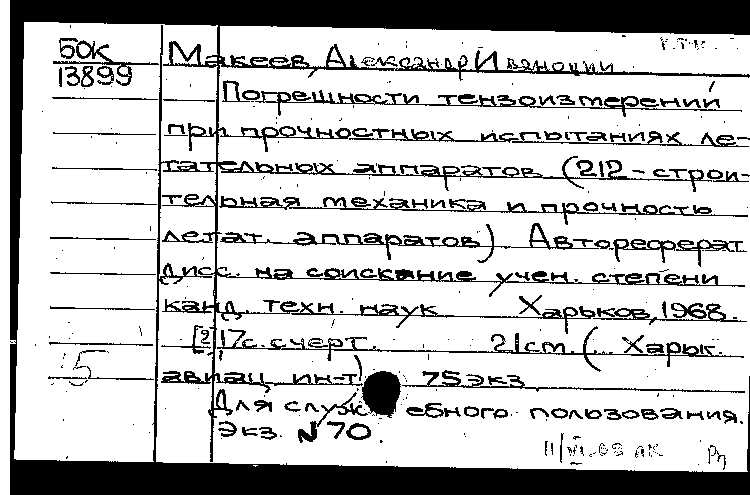 БОК
13899
Макеев, Александр Иванович
Погрешности тензоизмерений
при прочностных испытаниях ле-
тательных аппаратов (212-строи-
тельная механика и прочность
летат. аппаратов) Автореферат
дисс. на соискание учен. степени
канд. техн. наук Харьков, 1968.
[2] 17с. с черт. 21см. (Харьк.
авиац. ин-т) 75 экз.
5
Для служебного пользования.
экз. № 70.
11/VI-68